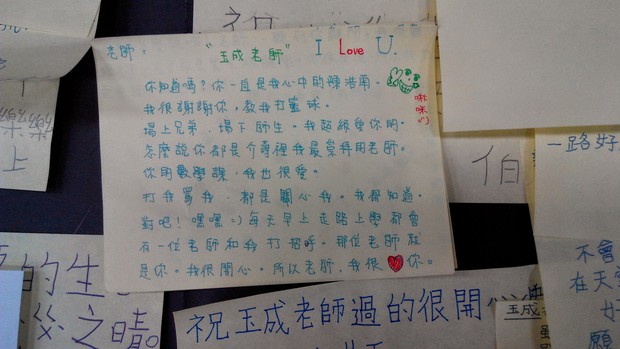 老師：
"玉成老師" I Love U.
你知道嗎？你一直是我心中的陳浩南。
我很謝謝你，教我打籃球。
場上兄弟，場下師生。我超級愛你的。
怎麼說你都是介壽裡我最崇拜的老師。
你的數學課，我也很愛。
打我罵我，都是關心我。我都知道。
對吧！嘿嘿=)每天早上走路上學都會
有一位老師和我打招呼。那位老師就
是你。我很開心。所以老師，我很♥你。
啾咪
樂樂
上
伯
一路好
的生
後之
祝玉成老師過的很開心
玉成
不會
在天
好
願